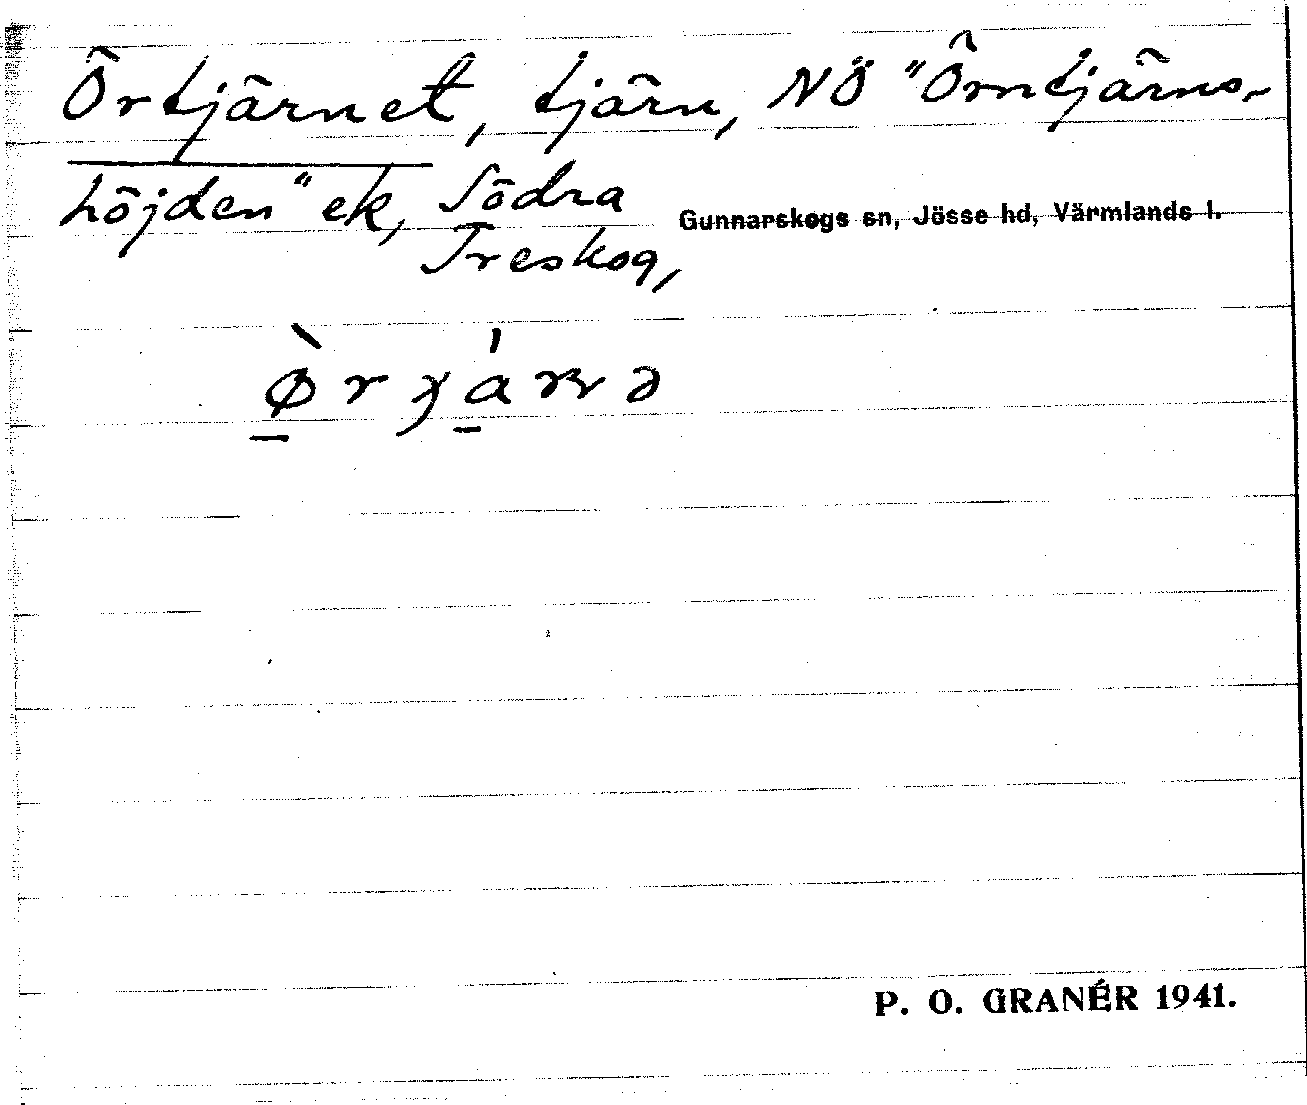 Örtjärnet, tjärn, NÖ "Örntjärns-
höjden" ek, Södra Gunnarskogs sn, Jösse hd, Värmlands l.
Treskog,
P. O. GRANÉR 1941.